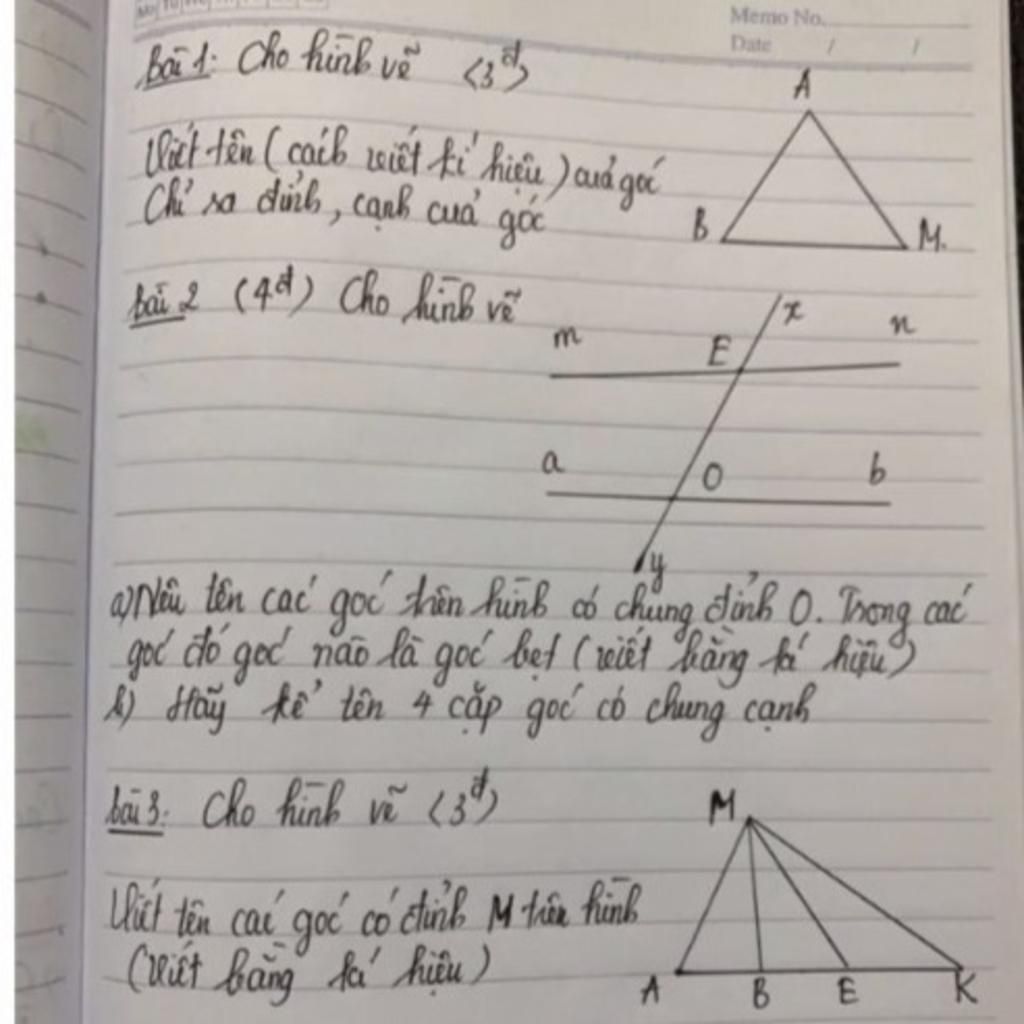 Memo No.
Date / /
Bài 1: Cho hình vẽ <3đ>
A
Viết tên (cách viết kí hiệu) của góc
Chỉ ra đỉnh, cạnh của góc
B
M.
Bài 2 (4đ) Cho hình vẽ
x
m
E
n
a
O
b
y
a) Nêu tên các góc trên hình có chung đỉnh O. Trong các
góc đó góc nào là góc bẹt (viết bằng kí hiệu)
b) Hãy kể tên 4 cặp góc có chung cạnh
Bài 3: Cho hình vẽ <3đ>
M
Viết tên các góc có đỉnh M trên hình
(Viết bằng kí hiệu)
A B E K